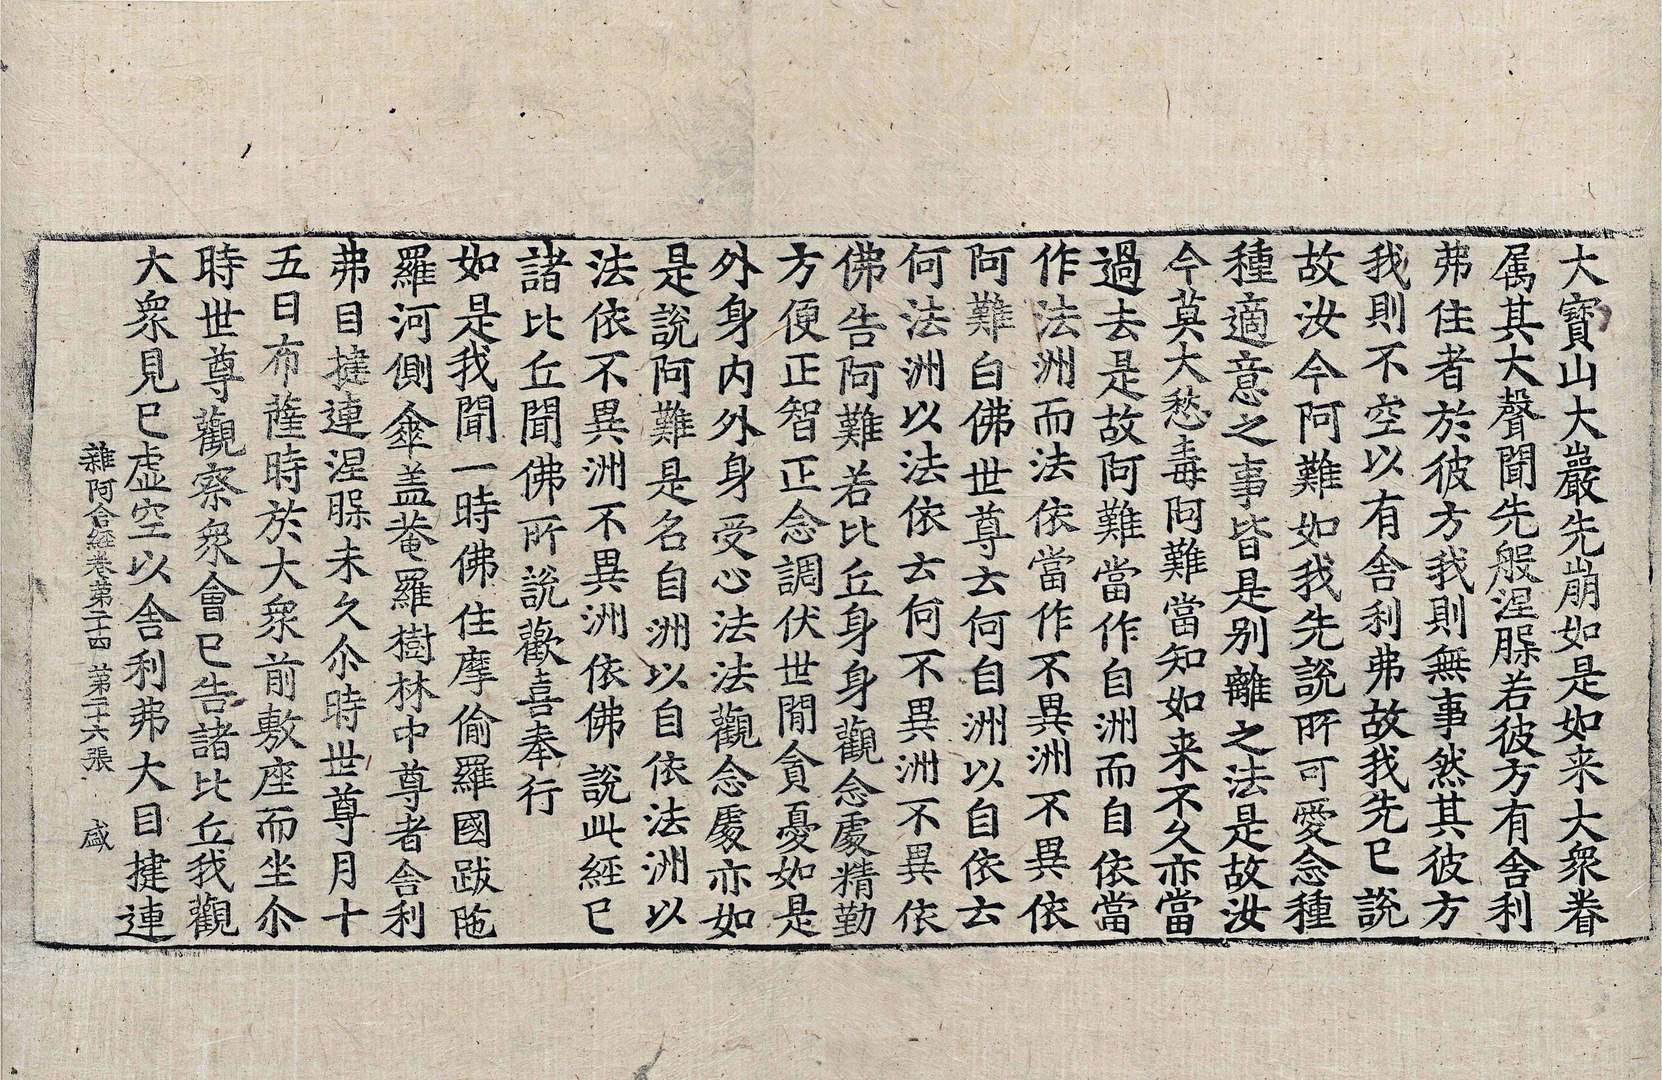 大寶山大巖先崩如是如来大衆眷
属其大聲聞先般涅脲若彼方有舍利
弗住者於彼方我則無事然其彼方
我則不空以有舎利弗故我先已說
故汝今阿難如我先說所可愛念種
種適意之事皆是別離之法是故汝
今莫大愁毒阿難當知如来不久亦當
過去是故阿難當作自洲而自依當
作法洲而法依當作不異洲不異依
阿難白佛世尊云何自洲以自依云
何法洲以法依云何不異洲不異依
佛告阿難若比丘身身觀念處精勤
方便正智正念調伏世閒貪憂如是
外身内外身受心法法觀念處亦如
是說阿難是名自洲以自依法洲以
法依不異洲不異洲依佛說此經已
諸比丘聞佛所說歡喜奉行
如是我聞一時佛住摩偷羅國跋陁
羅河側傘盖菴羅樹林中尊者舍利
弗目揵連涅脲未久尒時世尊月十
五日布薩時於大衆前敷座而坐尒
時世尊觀察衆會已告諸比丘我觀
大衆見已虛空以舎利弗大目揵連
雜阿含經卷第二十四 第二十六張 咸